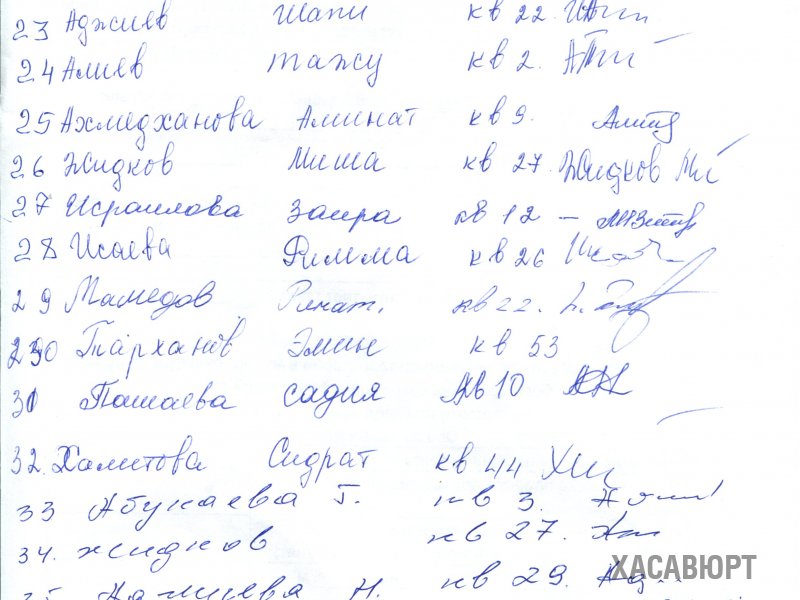 23 Аджиев Шапи кв 22.
24 Алиев Тажу кв 2.
25 Ахмедханова Аминат кв 9.
26 Жидков Миша кв 27. Жидков
27 Исраилова Заира кв 12 –
28 Исаева Римма кв 26
29 Мамедов Ринат. кв 22.
30 Тарханов Эмин кв 53
31 Пашаева Садия кв 10
32. Хамитова Сидрат кв 44
33 Абукаева Г. кв 3.
34. Жидков кв 27.
Н. кв 29.
ХАСАВЮРТ